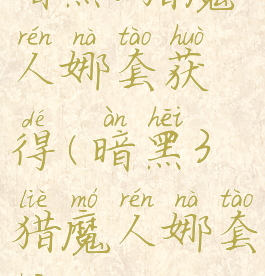 rén nà tào huò
人娜套获
dé àn hēi
得(暗黑3
liè mó rén nà tào
猎魔人娜套